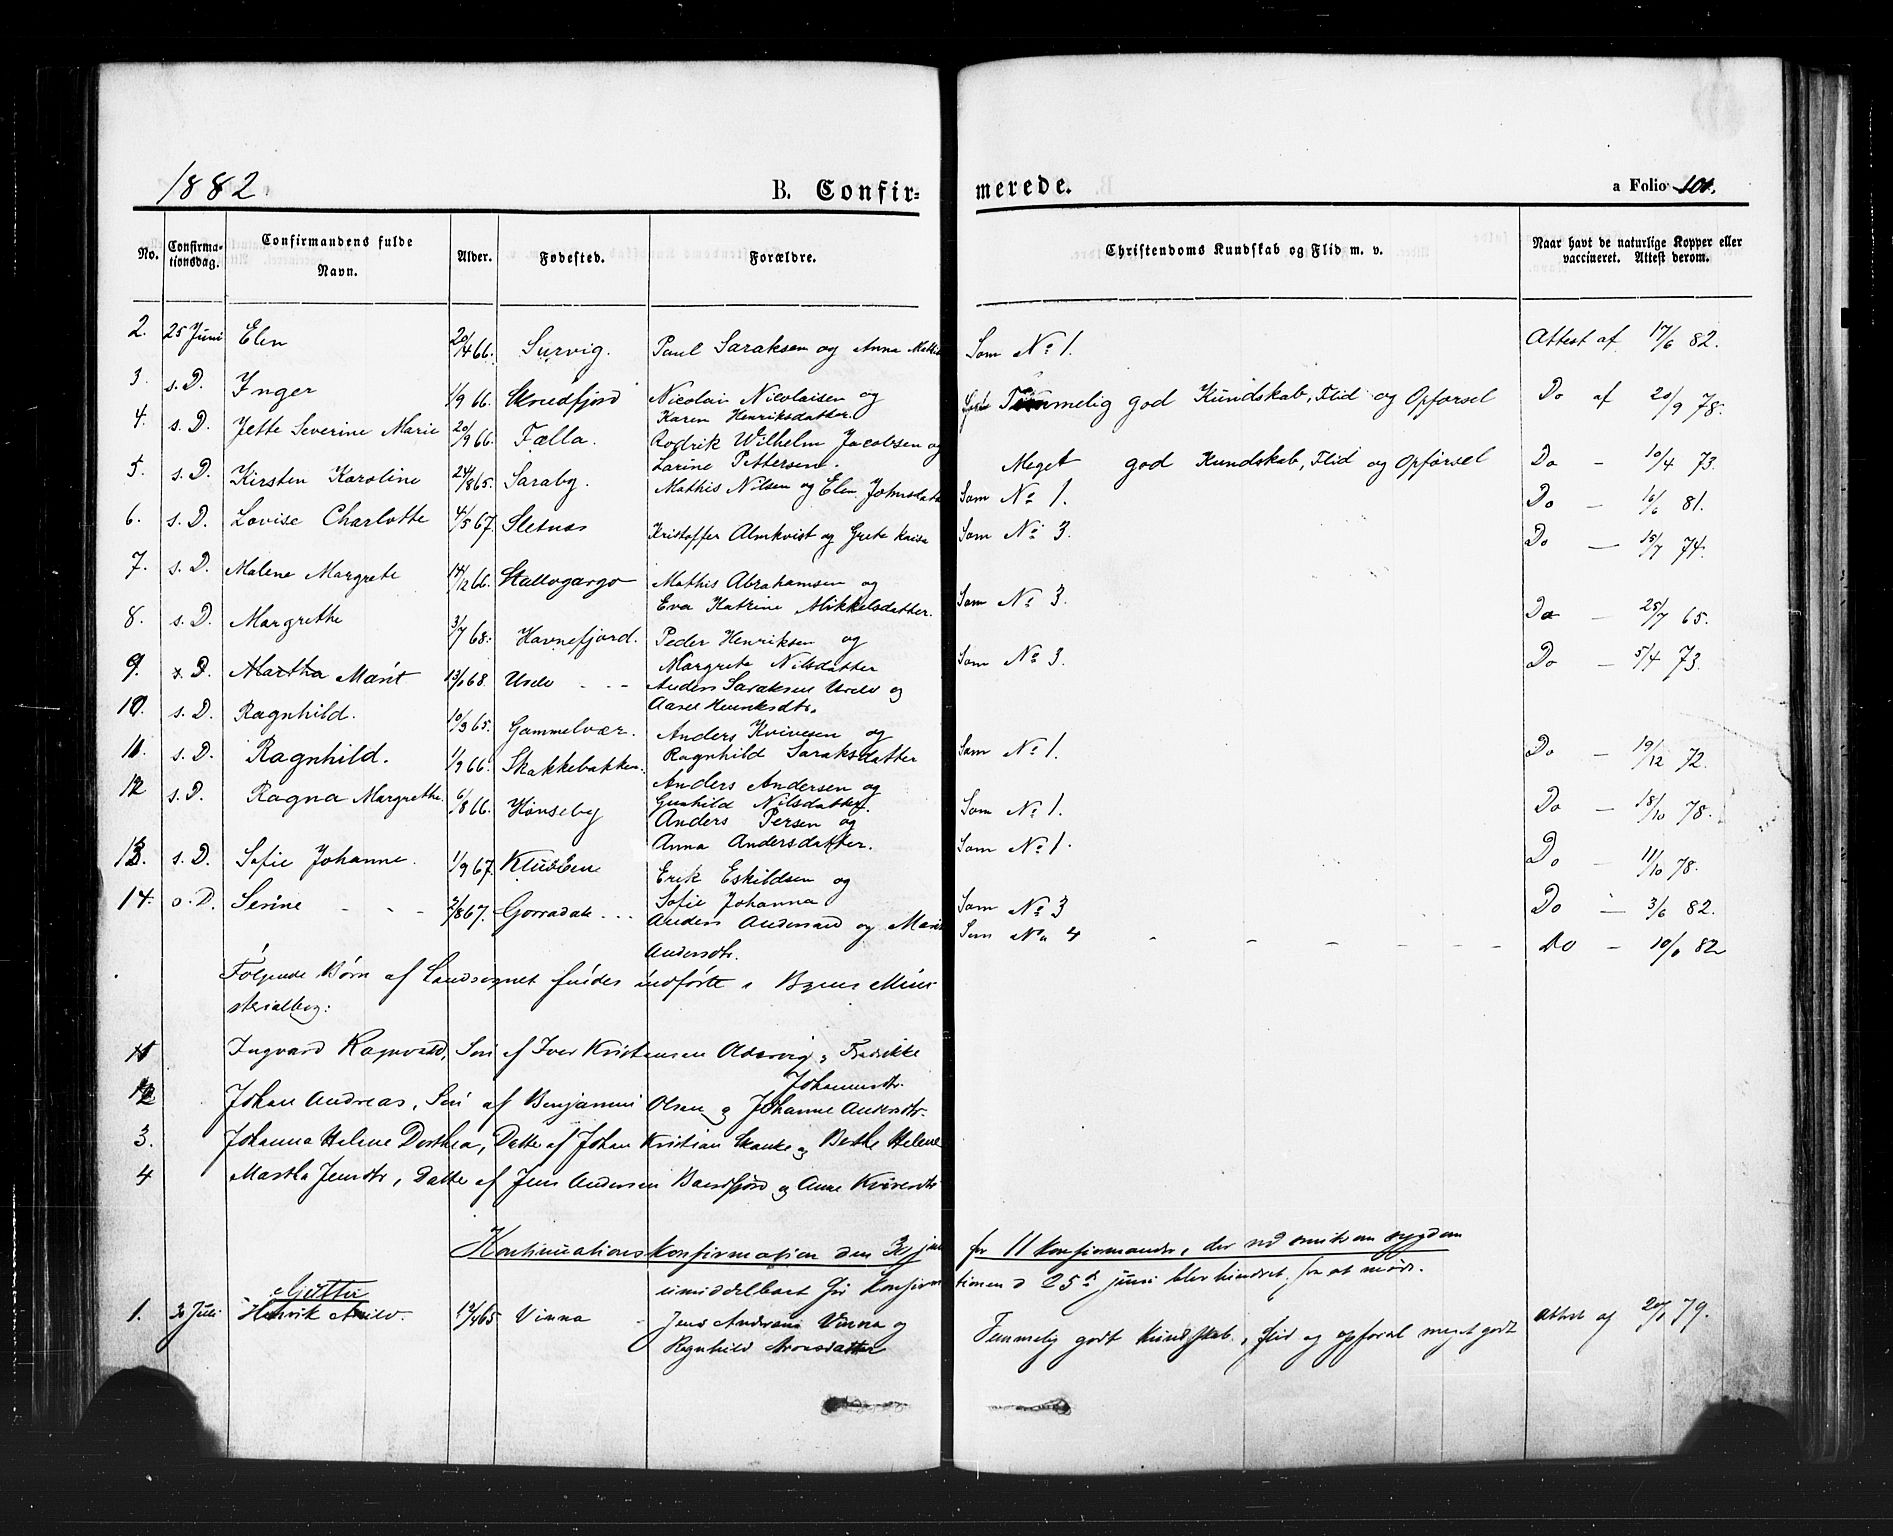 1882.
B. Confir-
merede.
a Folio 101.
No.
Confirma-
tionsdag.
Confirmandens fulde
Navn.
Alder.
Fødested.
Forældre.
Christendoms Kundskab og Flid m. v.
Naar havt de naturlige Kopper eller
vaccineret. Attest derom.
2. 25 Juni Elen 20/4 66. Survig. Paul Saraksen og Anna Som No 1. Attest af 17/6 82.
3. s. D. Inger 1/9 66. Skredfjord Nicolai Nicolaisen og
Karen Henriksdatter. Temmelig god Kundskab, Flid og Opførsel Do af 20/9 78.
4. s. D. Jette Severine Marie 20/9 66. Fælla. Rodrik Wilhelm Jacobsen og
Larine Pettersen. Meget god Kundskab, Flid og Opførsel Do - 10/4 73.
5. s. D. Kirsten Karoline 24/8 65. Saraby. Mathis Nilsen og Elen Johnsdatter Som No 1. Do - 16/6 81.
6. s. D. Lovise Charlotte 4/5 67. Sletnæs Kristoffer Almkvist og Grete Kaisa Som No 3. Do - 15/7 74.
7. s. D. Malene Margrete 14/12 66. Stallogargo Mathis Abrahamsen og
Eva Katrine Mikkelsdatter. Som No 3. Do - 25/7 65.
8. s. D. Margrethe 3/7 68. Havnefjord. Peder Henriksen og
Margrete Nilsdatter Som No 3. Do - 5/4 73.
9. s. D. Martha Marit 13/1 68. Ursdv - - Anders Saraksen og
Aasel Henriksdtr.
10. s. D. Ragnhild. 10/3 65. Gammelvær. Anders Kvivesen og
Ragnhild Saraksdatter Som No 1. Do - 19/12 72.
11. s. D. Ragnhild. 1/9 66. Skakkebakken. Anders Andersen og
Gunhild Nilsdatter. Som No 1. Do - 18/10 78.
12 s. D. Ragna Margrethe. 6/8 66. Hønseby Anders Persen og
Anna Andersdatter. Som No 1. Do - 11/10 78.
13. s. D. Sofie Johanne. 1/9 67. Klubben Erik Eskildsen og
Sofie Johanna Som No 3 Do - 3/6 82.
14. s. D. Serine - - - 2/8 67. Gorradak - - - Anders Andersen og Marit
Andersdtr. Som No 4 - - - - - - Do - 10/6 82
Følgende Børn af Landsognet findes indførte i Byens Mini-
sterialbog:
1 Ingvard Ragnvald, Søn af Iver Kristensen Oldervig og Fredrikke
Johannesdtr.
2 Johan Andreas, Søn af Benjamin Olsen og Johanne Andersdtr.
3. Johanna Helene Dorthea, Datter af Johan Kristian Skanke og Berthe Helene
4 Martha Jensdtr, Datter af Jens Andersen Baresfjord og Anne Kvivesdtr
Kontinuationskonfirmation den 30 for 11 Konfirmander, der
umiddelbart før Konfirmationen d 25d juni blev hindret fra at møde.
Gutter
1. 30 Juli Henrik Arild. 12/4 65 Vinna - Jens Andreas Vinna og
Ragnhild Aronsdatter Temmelig godt Kundskab, flid og opførsel meget godt Attest af 20/6 79.